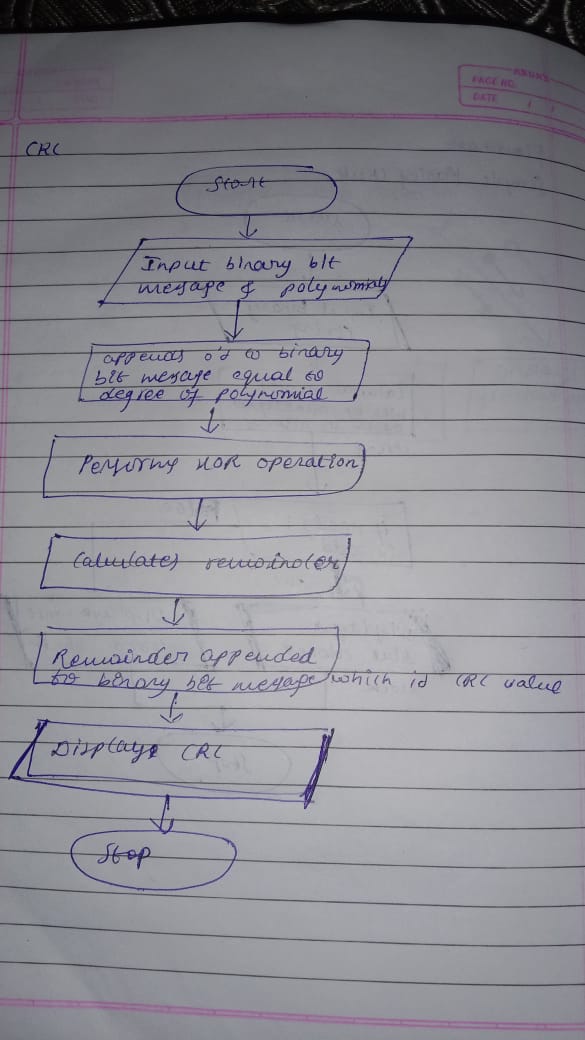 PAGE NO.
DATE / /
CRC
Start
Input binary bit
message & polynomials
appends 0's to binary
bit message equal to
degree of polynomial
Performs XOR operation
Calculates remainder
Remainder appended
to binary bit message which is CRC value
Displays CRC
Stop